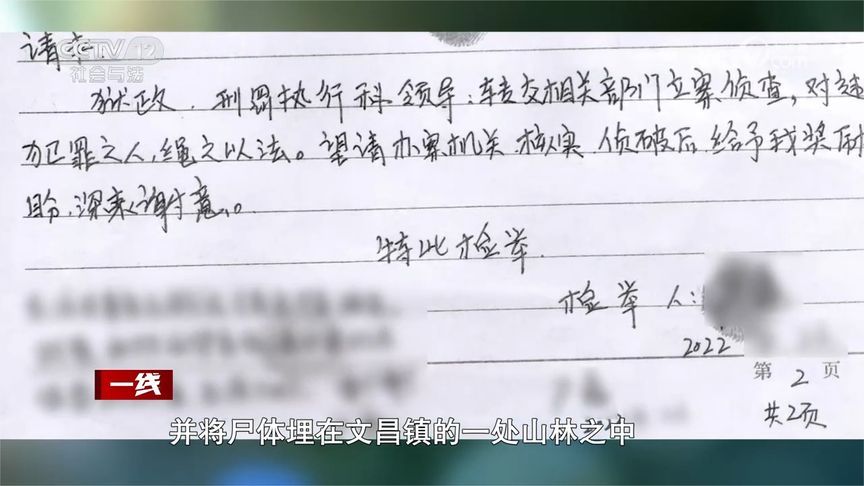 CCTV 12
社会与法
请求:
狱政、刑罚执行科领导:转交相关部门立案侦查,对逃
犯罪之人,绳之以法。望请办案机关核实侦破后给予我奖励
盼,深表谢意。
特此检举.
检举人:
2022
第 2 页
共2页
一线
并将尸体埋在文昌镇的一处山林之中